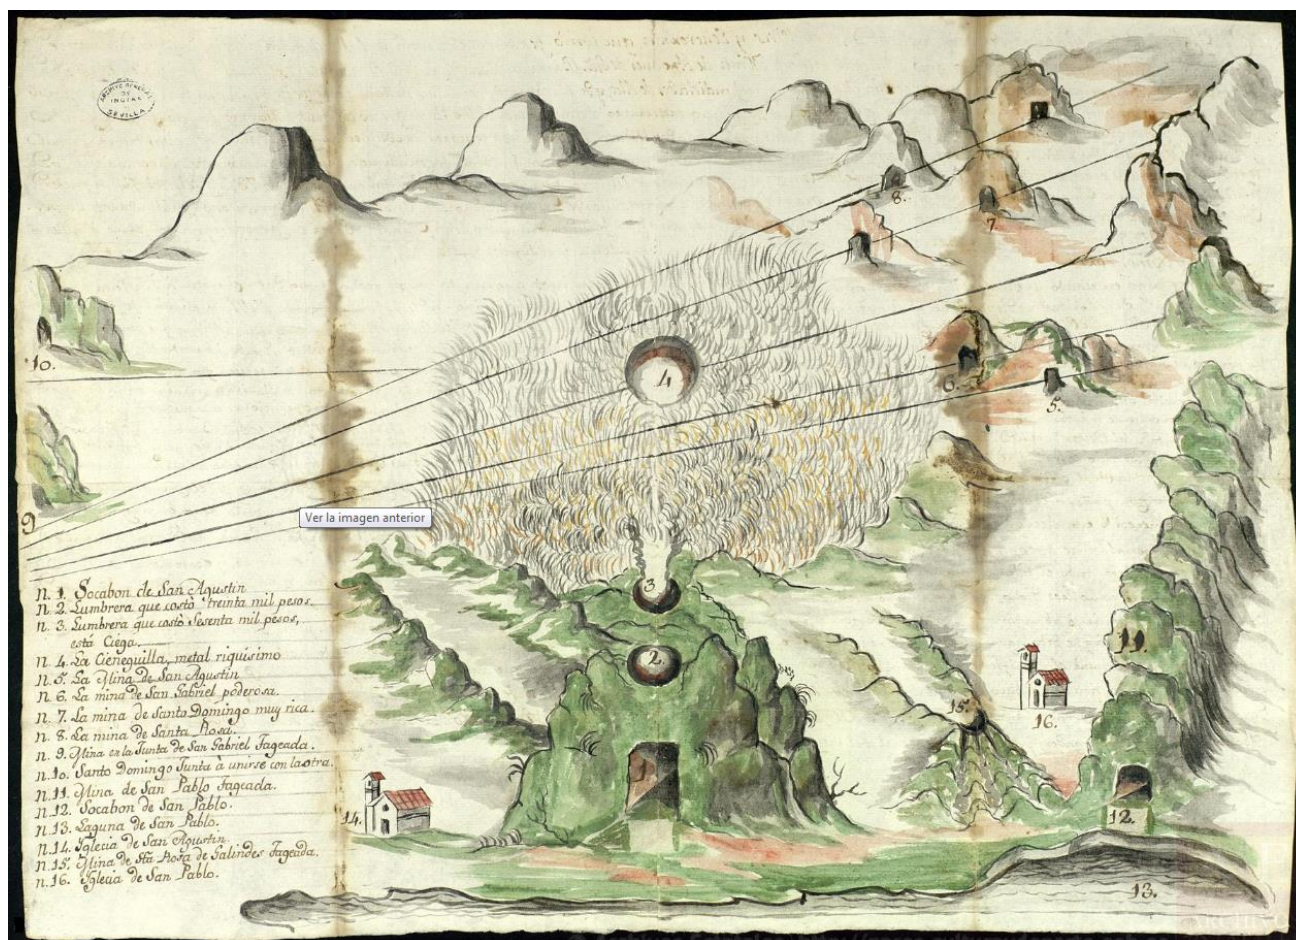 ARCHIVO GENERAL
DE
INDIAS
SEVILLA
8.
7
10.
4
6.
5.
9
Ver la imagen anterior
3
2.
1
11.
15.
16.
14.
12.
13.
n. 1. Socabon de San Agustin
n. 2. Lumbrera que costó treinta mil pesos.
n. 3. Lumbrera que costó Sesenta mil pesos,
está Ciega.
n. 4. La Cieneguilla, metal riquisimo
n. 5. La Mina de San Agustin
n. 6. La mina de San Gabriel poderosa.
n. 7. La mina de Santa Domingo muy rica.
n. 8. La mina de Santa Rosa.
n. 9. Mina en la Junta de San Gabriel Tageada.
n. 10. Santo Domingo Junta à unirse con la otra.
n. 11. Mina de San Pablo Tageada.
n. 12. Socabon de San Pablo.
n. 13. Laguna de San Pablo.
n. 14. Iglecia de San Agustin.
n. 15. Mina de Sta Rosa de Galindes Tageada.
n. 16. Iglecia de San Pablo.